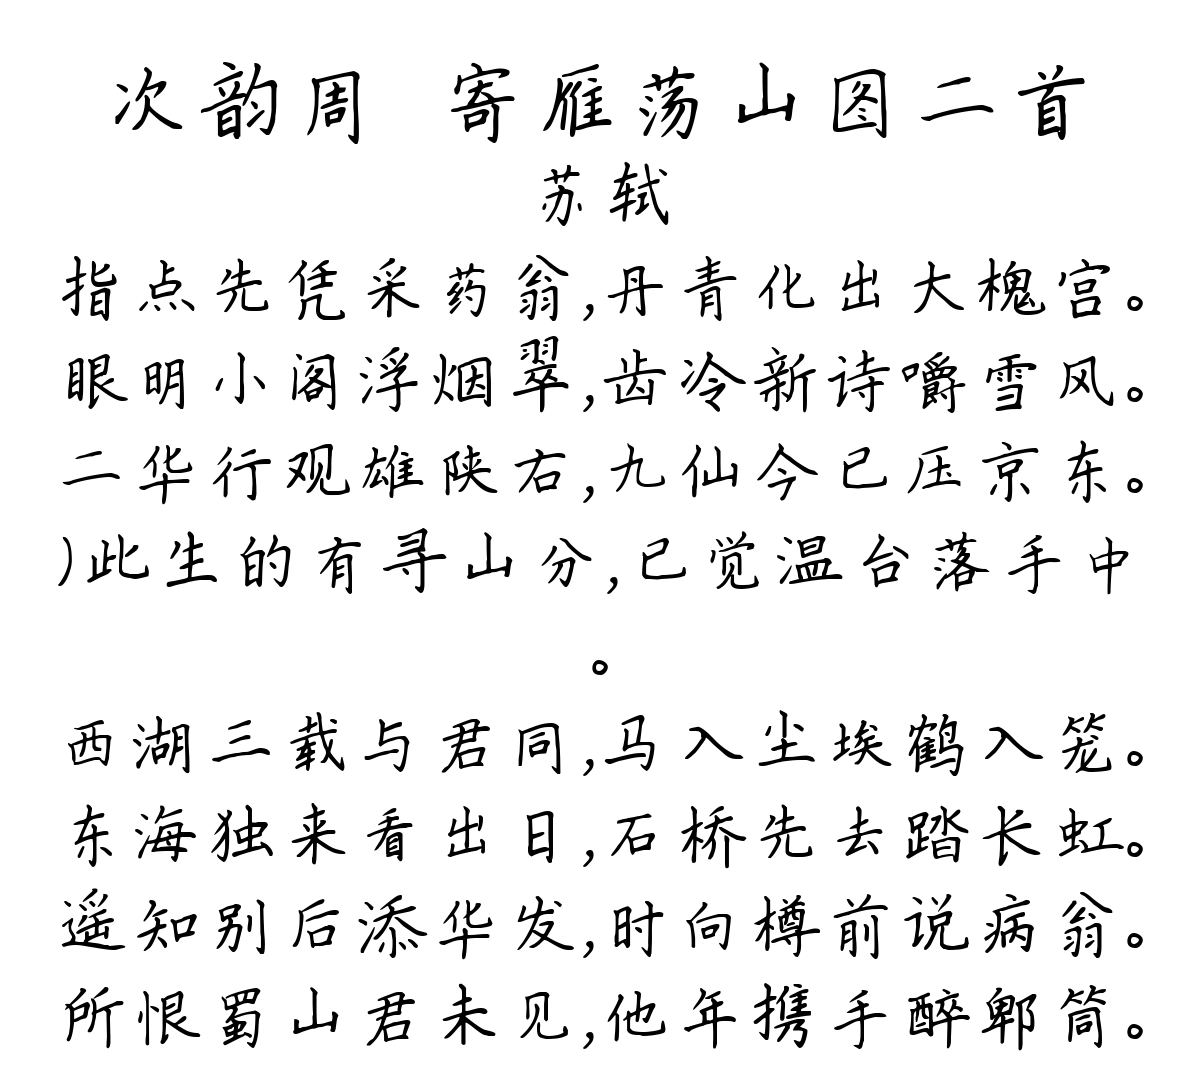 次韵周 寄雁荡山图二首
苏轼
指点先凭采药翁,丹青化出大槐宫。
眼明小阁浮烟翠,齿冷新诗嚼雪风。
二华行观雄陕右,九仙今已压京东。
)此生的有寻山分,已觉温台落手中
。
西湖三载与君同,马入尘埃鹤入笼。
东海独来看出日,石桥先去踏长虹。
遥知别后添华发,时向樽前说病翁。
所恨蜀山君未见,他年携手醉郫筒。